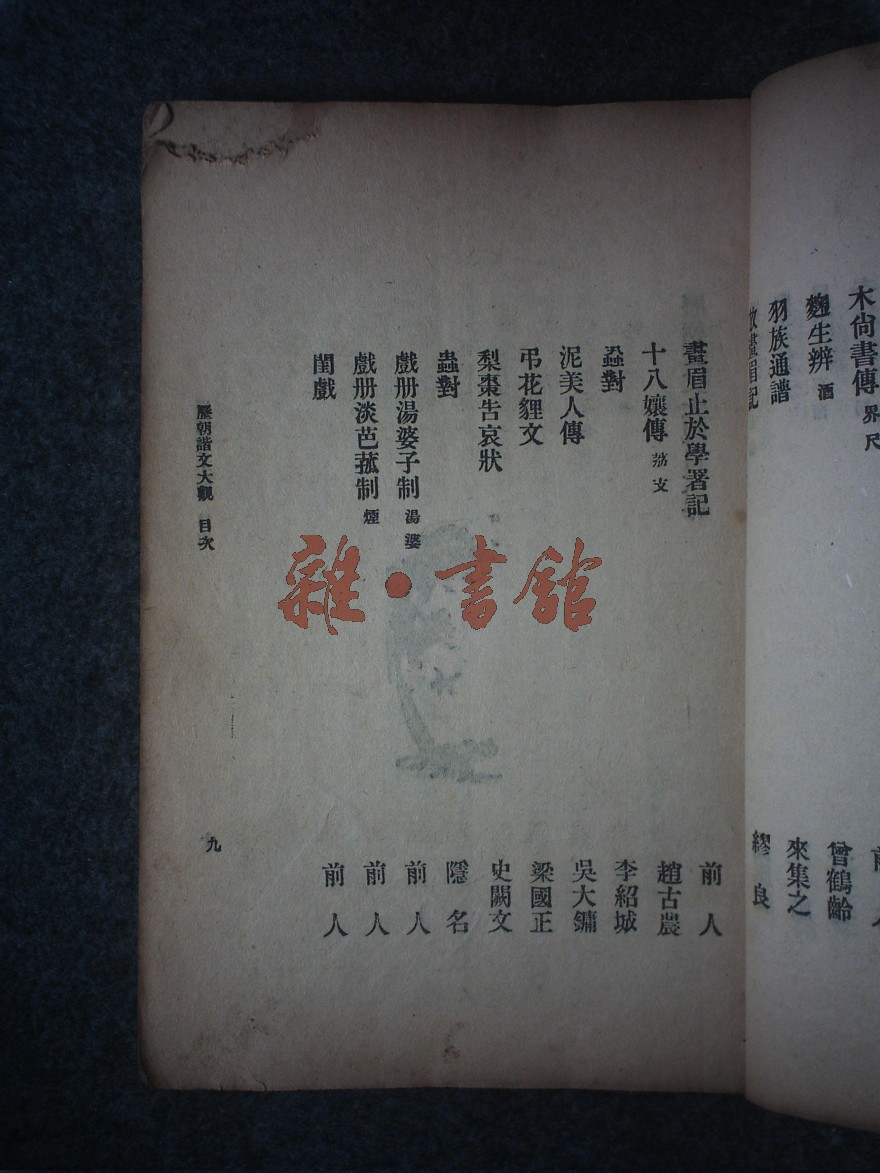 木尙書傳 界尺
前人
麴生辨 酒
曾鶴齡
羽族通譜
來集之
畫眉記
繆良
畫眉止於學署記
前人
十八孃傳 荔支
趙古農
蝨對
李紹城
泥美人傳
吳大鏞
弔花貍文
梁國正
梨棗告哀狀
史闕文
蟲對
隱名
戲册湯婆子制 湯婆
前人
戲册淡芭菰制 煙
前人
閨戲
前人
歷朝諧文大觀 目次
九
雜·書館